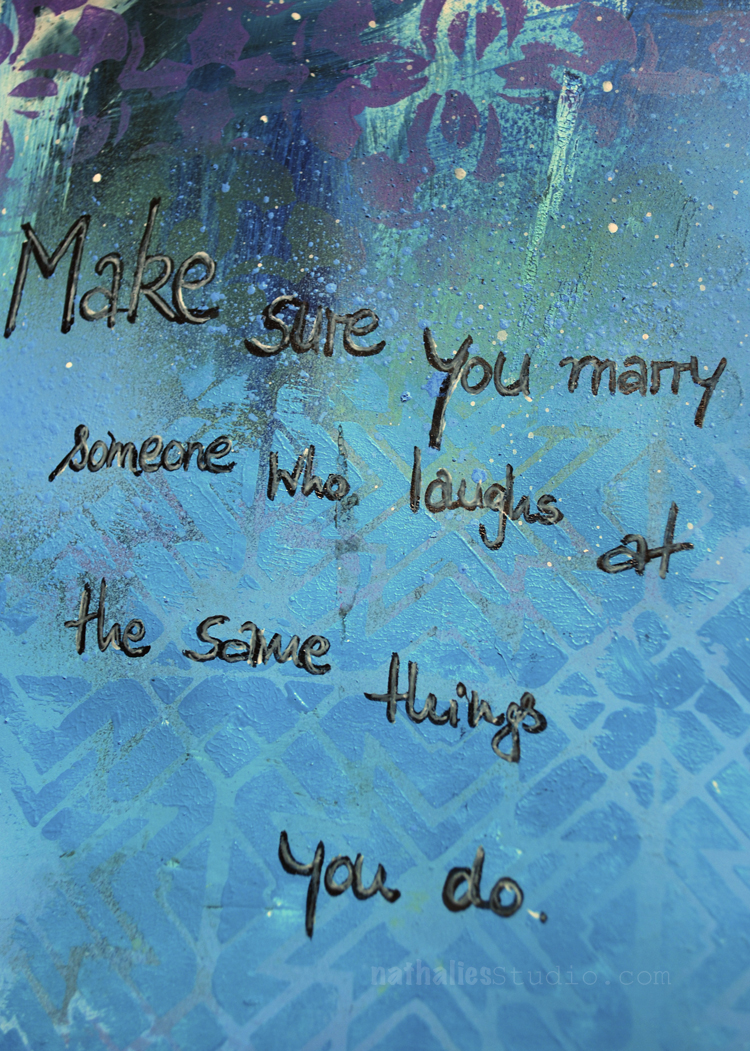 Make sure you marry
someone who laughs at
the same things
you do.
nathaliesstudio.com